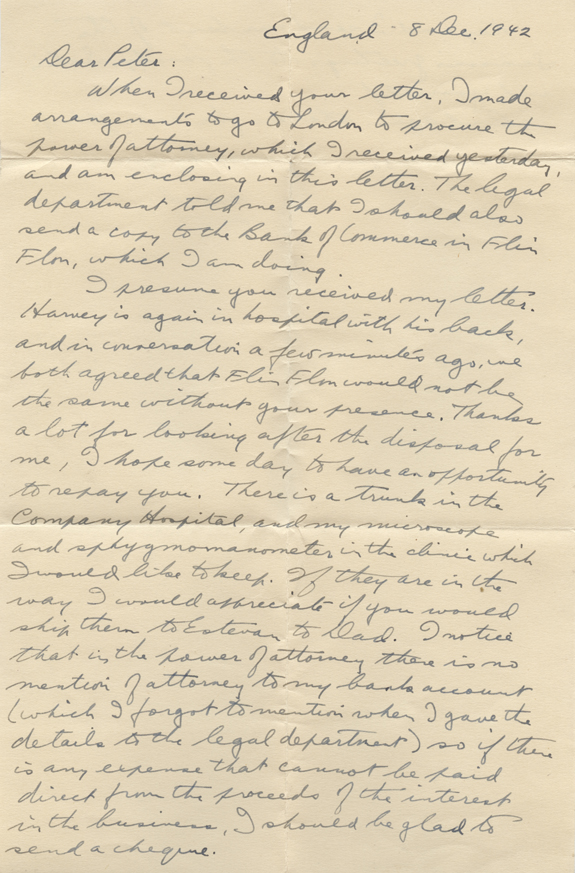 England - 8 Dec. 1942
Dear Peter:
When I received your letter, I made
arrangements to go to London to procure the
power of attorney, which I received yesterday,
and am enclosing in this letter. The legal
department told me that I should also
send a copy to the Bank of Commerce in Flin
Flon, which I am doing.
I presume you received my letter.
Harvey is again in hospital with his back,
and in conversation a few minutes ago, we
both agreed that Flin Flon would not be
the same without your presence. Thanks
a lot for looking after the disposal for
me, I hope some day to have an opportunity
to repay you. There is a trunk in the
Company Hospital, and my microscope
and sphygmomanometer in the clinic which
I would like to keep. If they are in the
way I would appreciate if you would
ship them to Estevan to Dad. I notice
that in the power of attorney there is no
mention of attorney to my bank account
(which I forgot to mention when I gave the
details to the legal department) so if there
is any expense that cannot be paid
direct from the proceeds of the interest
in the business, I should be glad to
send a cheque.